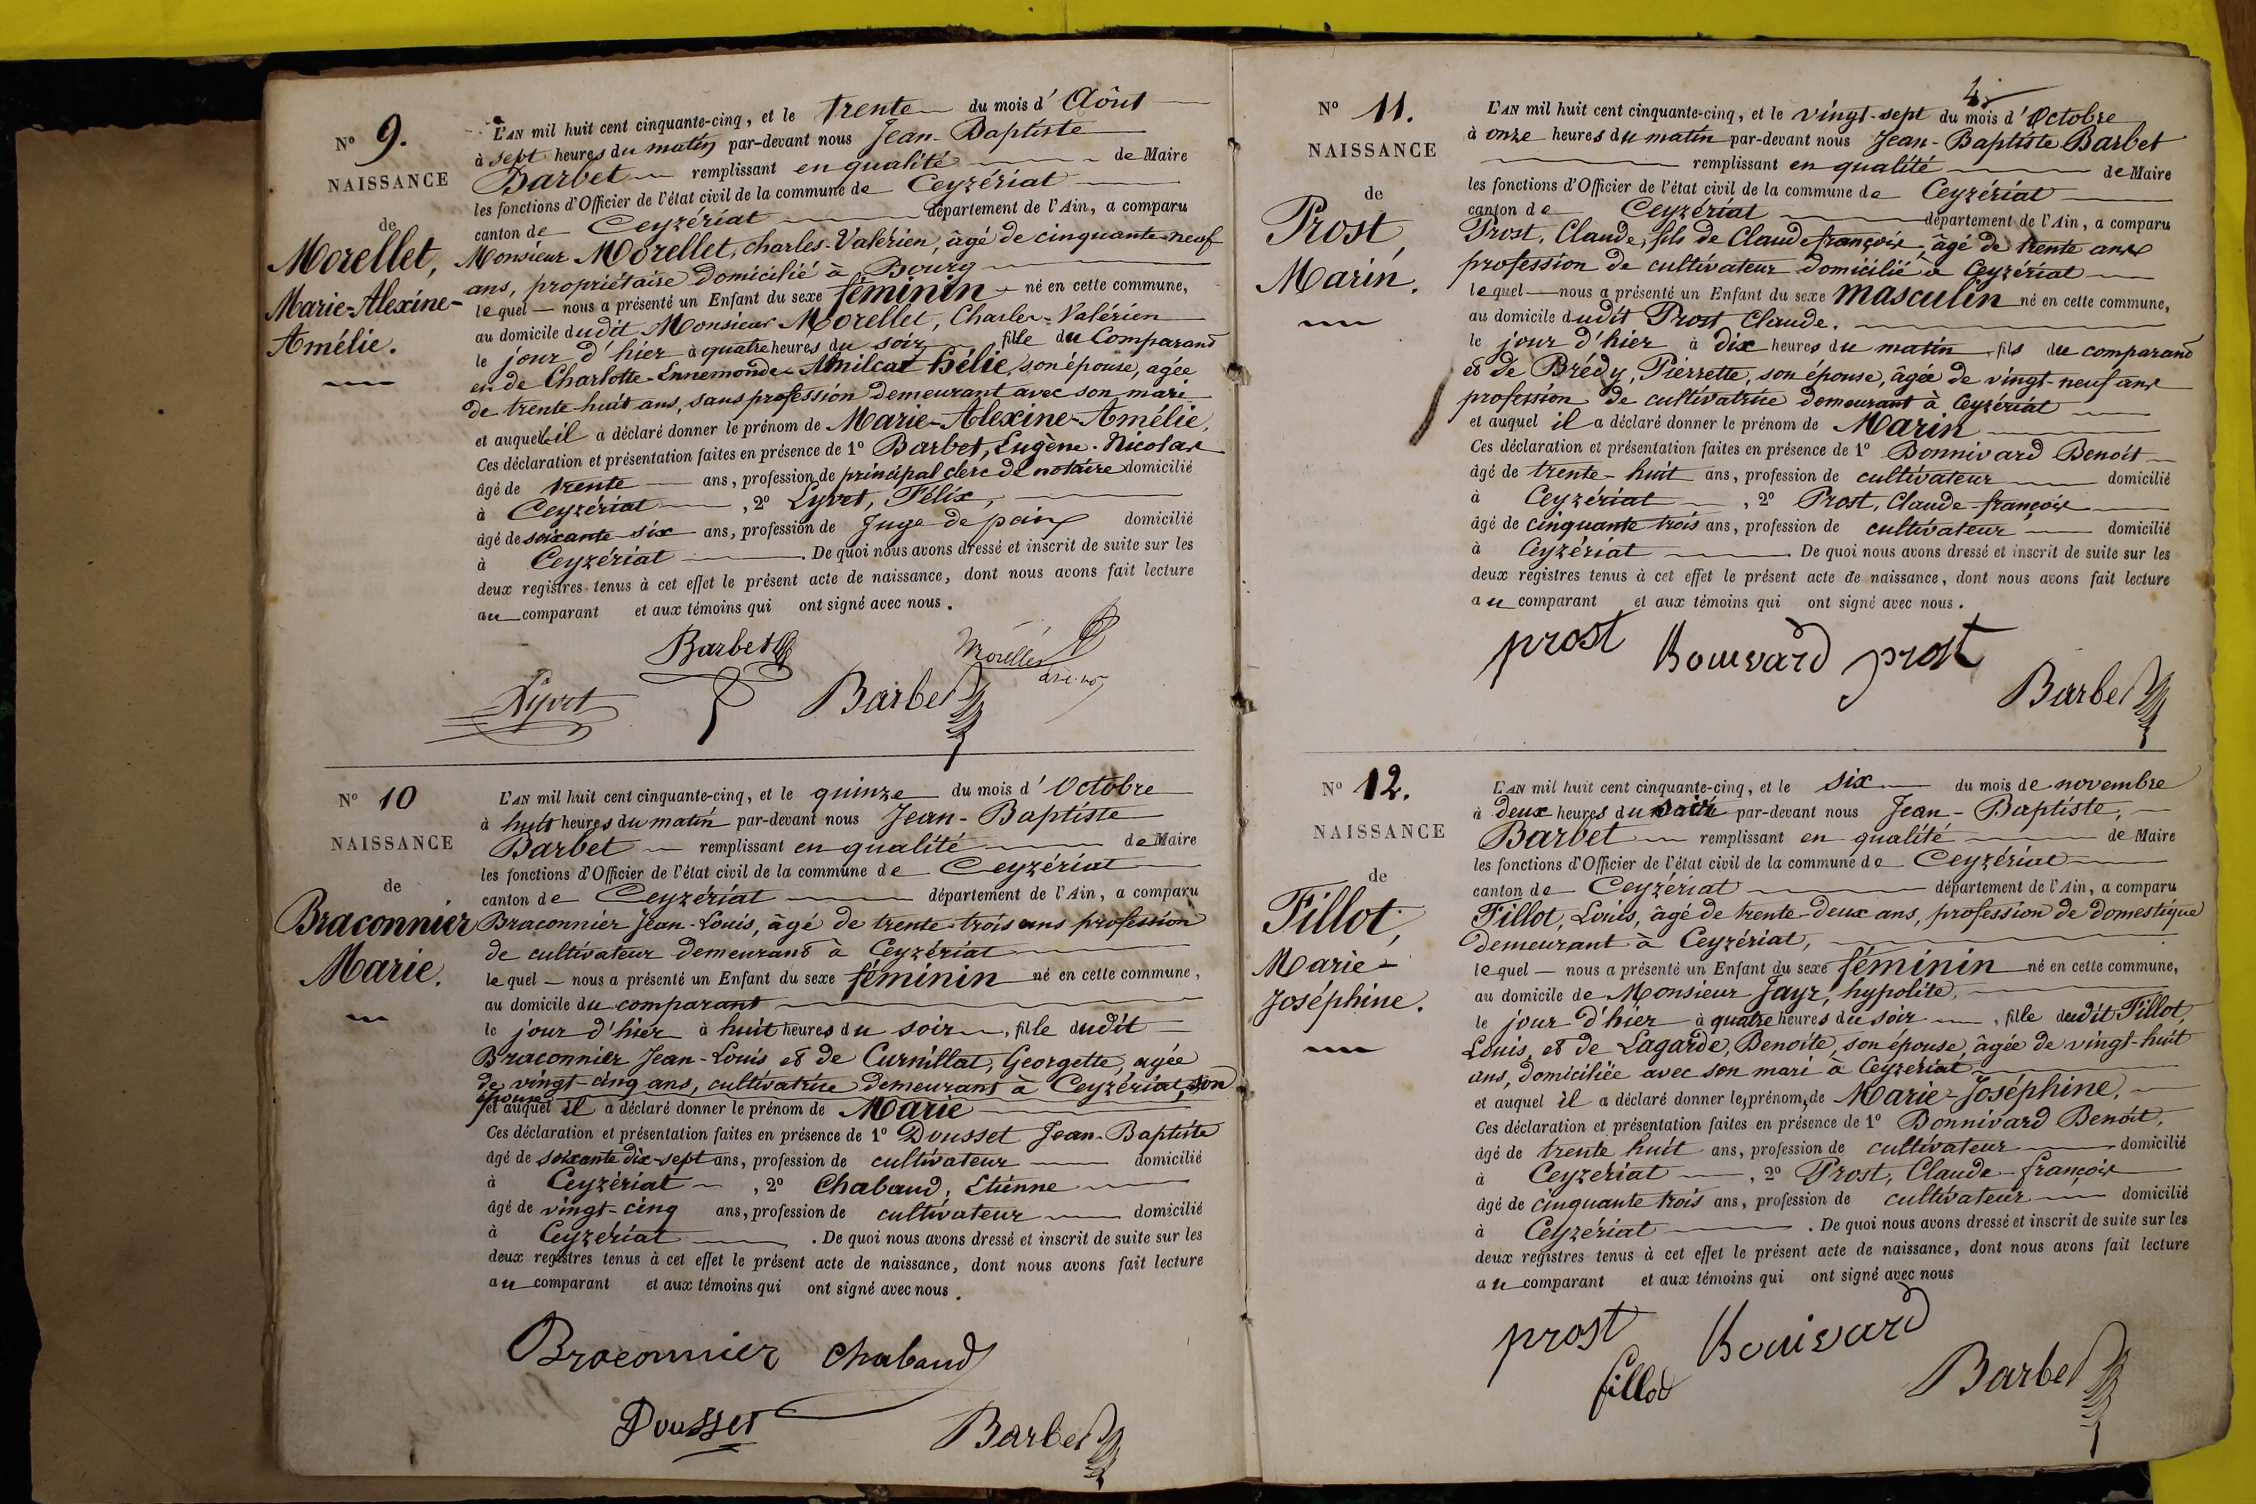 N° 9.
NAISSANCE
de
Morellet,
Marie-Alexine-
Amélie.
L'AN mil huit cent cinquante-cinq, et le trente du mois d'Aôut
à sept heures du matin par-devant nous Jean-Baptiste
Barbet remplissant en qualité de Maire
les fonctions d'Officier de l'état civil de la commune de Ceyzériat
canton de Ceyzériat département de l'Ain, a comparu
Monsieur Morellet, charles-Valérien, âgé de cinquante-neuf
ans, propriétaire domicilié à Bourg
lequel nous a présenté un Enfant du sexe féminin né en cette commune,
au domicile dudit Monsieur Morellet, Charles-Valérien
le jour d'hier à quatre heures du soir, fille du Comparand
et de Charlotte-Ennemonde-Amilcar Hélie, son épouse, agée
de trente huit ans, sans profession demeurant avec son mari
et auquel il a déclaré donner le prénom de Marie-Alexine-Amélie,
Ces déclaration et présentation faites en présence de 1° Barbet, Eugène-Nicolas
âgé de trente ans, profession de principal clerc de notaire domicilié
à Ceyzériat, 2° Lyvet, Félix,
âgé de soixante-six ans, profession de Juge de paix domicilié
à Ceyzériat. De quoi nous avons dressé et inscrit de suite sur les
deux registres tenus à cet effet le présent acte de naissance, dont nous avons fait lecture
au comparant et aux témoins qui ont signé avec nous.
Barbet Morellet
Lyvet Barbet
N° 10
NAISSANCE
de
Braconnier
Marie.
L'AN mil huit cent cinquante-cinq, et le quinze du mois d'Octobre
à huit heures du matin par-devant nous Jean-Baptiste
Barbet remplissant en qualité de Maire
les fonctions d'Officier de l'état civil de la commune de Ceyzériat
canton de Ceyzériat département de l'Ain, a comparu
Braconnier Jean-Louis, âgé de trente-trois ans profession
de cultivateur demeurant à Ceyzériat
lequel nous a présenté un Enfant du sexe féminin né en cette commune,
au domicile du comparant
le jour d'hier à huit heures du soir, fille dudit
Braconnier Jean-Louis et de Curnillat, Georgette, agée
de vingt-cinq ans, cultivatrice demeurant à Ceyzériat, son
épouse
et auquel il a déclaré donner le prénom de Marie
Ces déclaration et présentation faites en présence de 1° Dousset Jean-Baptiste
âgé de soixante dix-sept ans, profession de cultivateur domicilié
à Ceyzériat, 2° Chabaud, Etienne
âgé de vingt-cinq ans, profession de cultivateur domicilié
à Ceyzériat. De quoi nous avons dressé et inscrit de suite sur les
deux registres tenus à cet effet le présent acte de naissance, dont nous avons fait lecture
au comparant et aux témoins qui ont signé avec nous.
Braconnier Chabaud
Dousset Barbet
4
N° 11.
NAISSANCE
de
Prost,
Marin.
L'AN mil huit cent cinquante-cinq, et le vingt-sept du mois d'Octobre
à onze heures du matin par-devant nous Jean-Baptiste Barbet
remplissant en qualité de Maire
les fonctions d'Officier de l'état civil de la commune de Ceyzériat
canton de Ceyzériat département de l'Ain, a comparu
Prost, Claude, fils de Claude françois, âgé de trente ans
profession de cultivateur domicilié à Ceyzériat
lequel nous a présenté un Enfant du sexe masculin né en cette commune,
au domicile dudit Prost Claude.
le jour d'hier à dix heures du matin, fils du comparand
et de Brédy, Pierrette, son épouse, âgée de vingt-neuf ans
profession de cultivatrice demeurant à Ceyzériat
et auquel il a déclaré donner le prénom de Marin
Ces déclaration et présentation faites en présence de 1° Bonnivard Benoit
âgé de trente-huit ans, profession de cultivateur domicilié
à Ceyzériat, 2° Prost, Claude-françois
âgé de cinquante trois ans, profession de cultivateur domicilié
à Ceyzériat. De quoi nous avons dressé et inscrit de suite sur les
deux registres tenus à cet effet le présent acte de naissance, dont nous avons fait lecture
au comparant et aux témoins qui ont signé avec nous.
prost Bonnivard prost
Barbet
N° 12.
NAISSANCE
de
Fillot,
Marie-
Joséphine.
L'AN mil huit cent cinquante-cinq, et le six du mois de novembre
à deux heures du soir par-devant nous Jean-Baptiste,
Barbet remplissant en qualité de Maire
les fonctions d'Officier de l'état civil de la commune de Ceyzériat
canton de Ceyzériat département de l'Ain, a comparu
Fillot, Louis, âgé de trente-deux ans, profession de domestique
demeurant à Ceyzériat,
lequel nous a présenté un Enfant du sexe féminin né en cette commune,
au domicile de Monsieur Jayr, hypolite,
le jour d'hier à quatre heures du soir, fille dudit Fillot,
Louis, et de Lagarde, Benoite, son épouse, âgée de vingt-huit
ans, domiciliée avec son mari à Ceyzériat
et auquel il a déclaré donner les prénoms de Marie-Joséphine,
Ces déclaration et présentation faites en présence de 1° Bonnivard Benoit,
âgé de trente huit ans, profession de cultivateur domicilié
à Ceyzériat, 2° Prost, Claude-françois
âgé de cinquante trois ans, profession de cultivateur domicilié
à Ceyzériat. De quoi nous avons dressé et inscrit de suite sur les
deux registres tenus à cet effet le présent acte de naissance, dont nous avons fait lecture
au comparant et aux témoins qui ont signé avec nous
prost Bonnivard
fillod Barbet